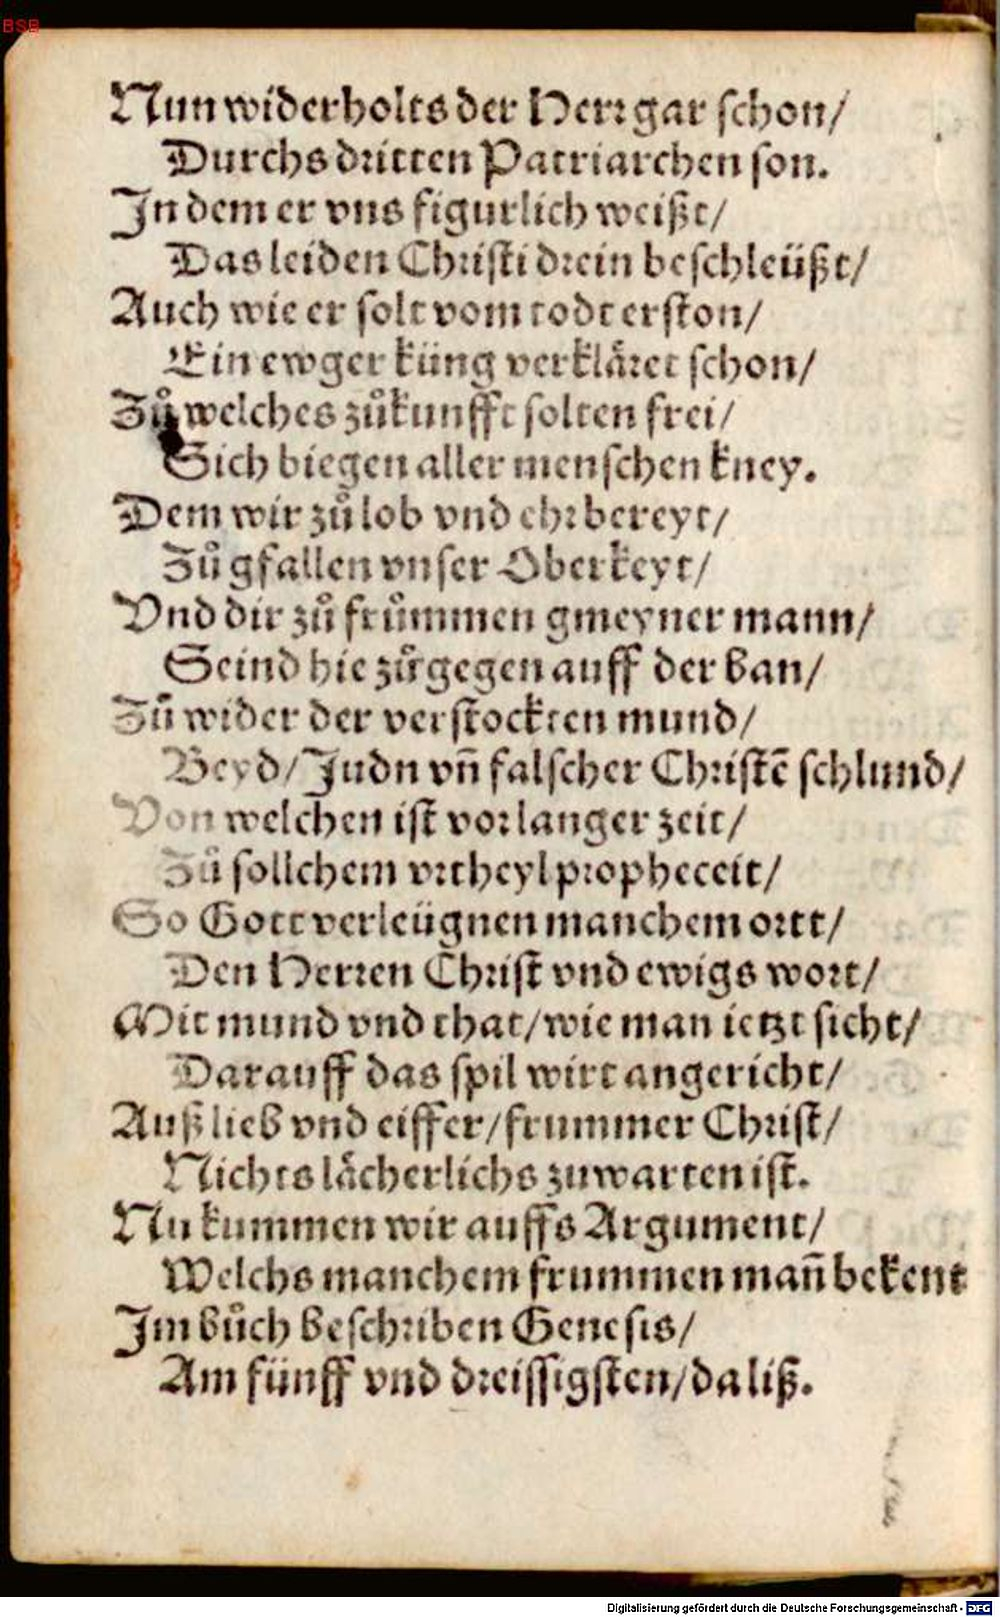 BSB
Nun widerholts der Herr gar schon/
Durchs dritten Patriarchen son.
In dem er vns figurlich weißt/
Das leiden Christi drein beschleüßt/
Auch wie er solt vom todt erston/
Ein ewger küng verkläret schon/
Zů welches zůkunfft solten frei/
Sich biegen aller menschen kney.
Dem wir zů lob vnd ehr bereyt/
Zů gfallen vnser Oberkeyt/
Vnd dir zů frůmmen gmeyner mann/
Seind hie zůgegen auff der ban/
Zů wider der verstockten mund/
Beyd/Judn vn̄ falscher Christē schlund/
Von welchen ist vor langer zeit/
Zů sollchem vrtheyl propheceit/
So Gott verleügnen manchem ortt/
Den Herren Christ vnd ewigs wort/
Mit mund vnd that/wie man ietzt sicht/
Darauff das spil wirt angericht/
Auß lieb vnd eiffer/frummer Christ/
Nichts lächerlichs zuwarten ist.
Nu kummen wir auffs Argument/
Welchs manchem frummen man̄ bekent
Im bůch beschriben Genesis/
Am fünff vnd dreissigsten/da liß.
Digitalisierung gefördert durch die Deutsche Forschungsgemeinschaft - DFG